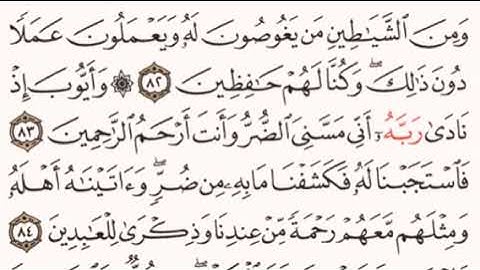 وَمِنَ الشَّيَاطِينِ مَن يَغُوصُونَ لَهُ وَيَعْمَلُونَ عَمَلًا
دُونَ ذَٰلِكَ ۖ وَكُنَّا لَهُمْ حَافِظِينَ ٨٢ ۞ وَأَيُّوبَ إِذْ
نَادَىٰ رَبَّهُ أَنِّي مَسَّنِيَ الضُّرُّ وَأَنتَ أَرْحَمُ الرَّاحِمِينَ ٨٣
فَاسْتَجَبْنَا لَهُ فَكَشَفْنَا مَا بِهِ مِن ضُرٍّ ۖ وَءَاتَيْنَاهُ أَهْلَهُ
وَمِثْلَهُم مَّعَهُمْ رَحْمَةً مِّنْ عِندِنَا وَذِكْرَىٰ لِلْعَابِدِينَ ٨٤